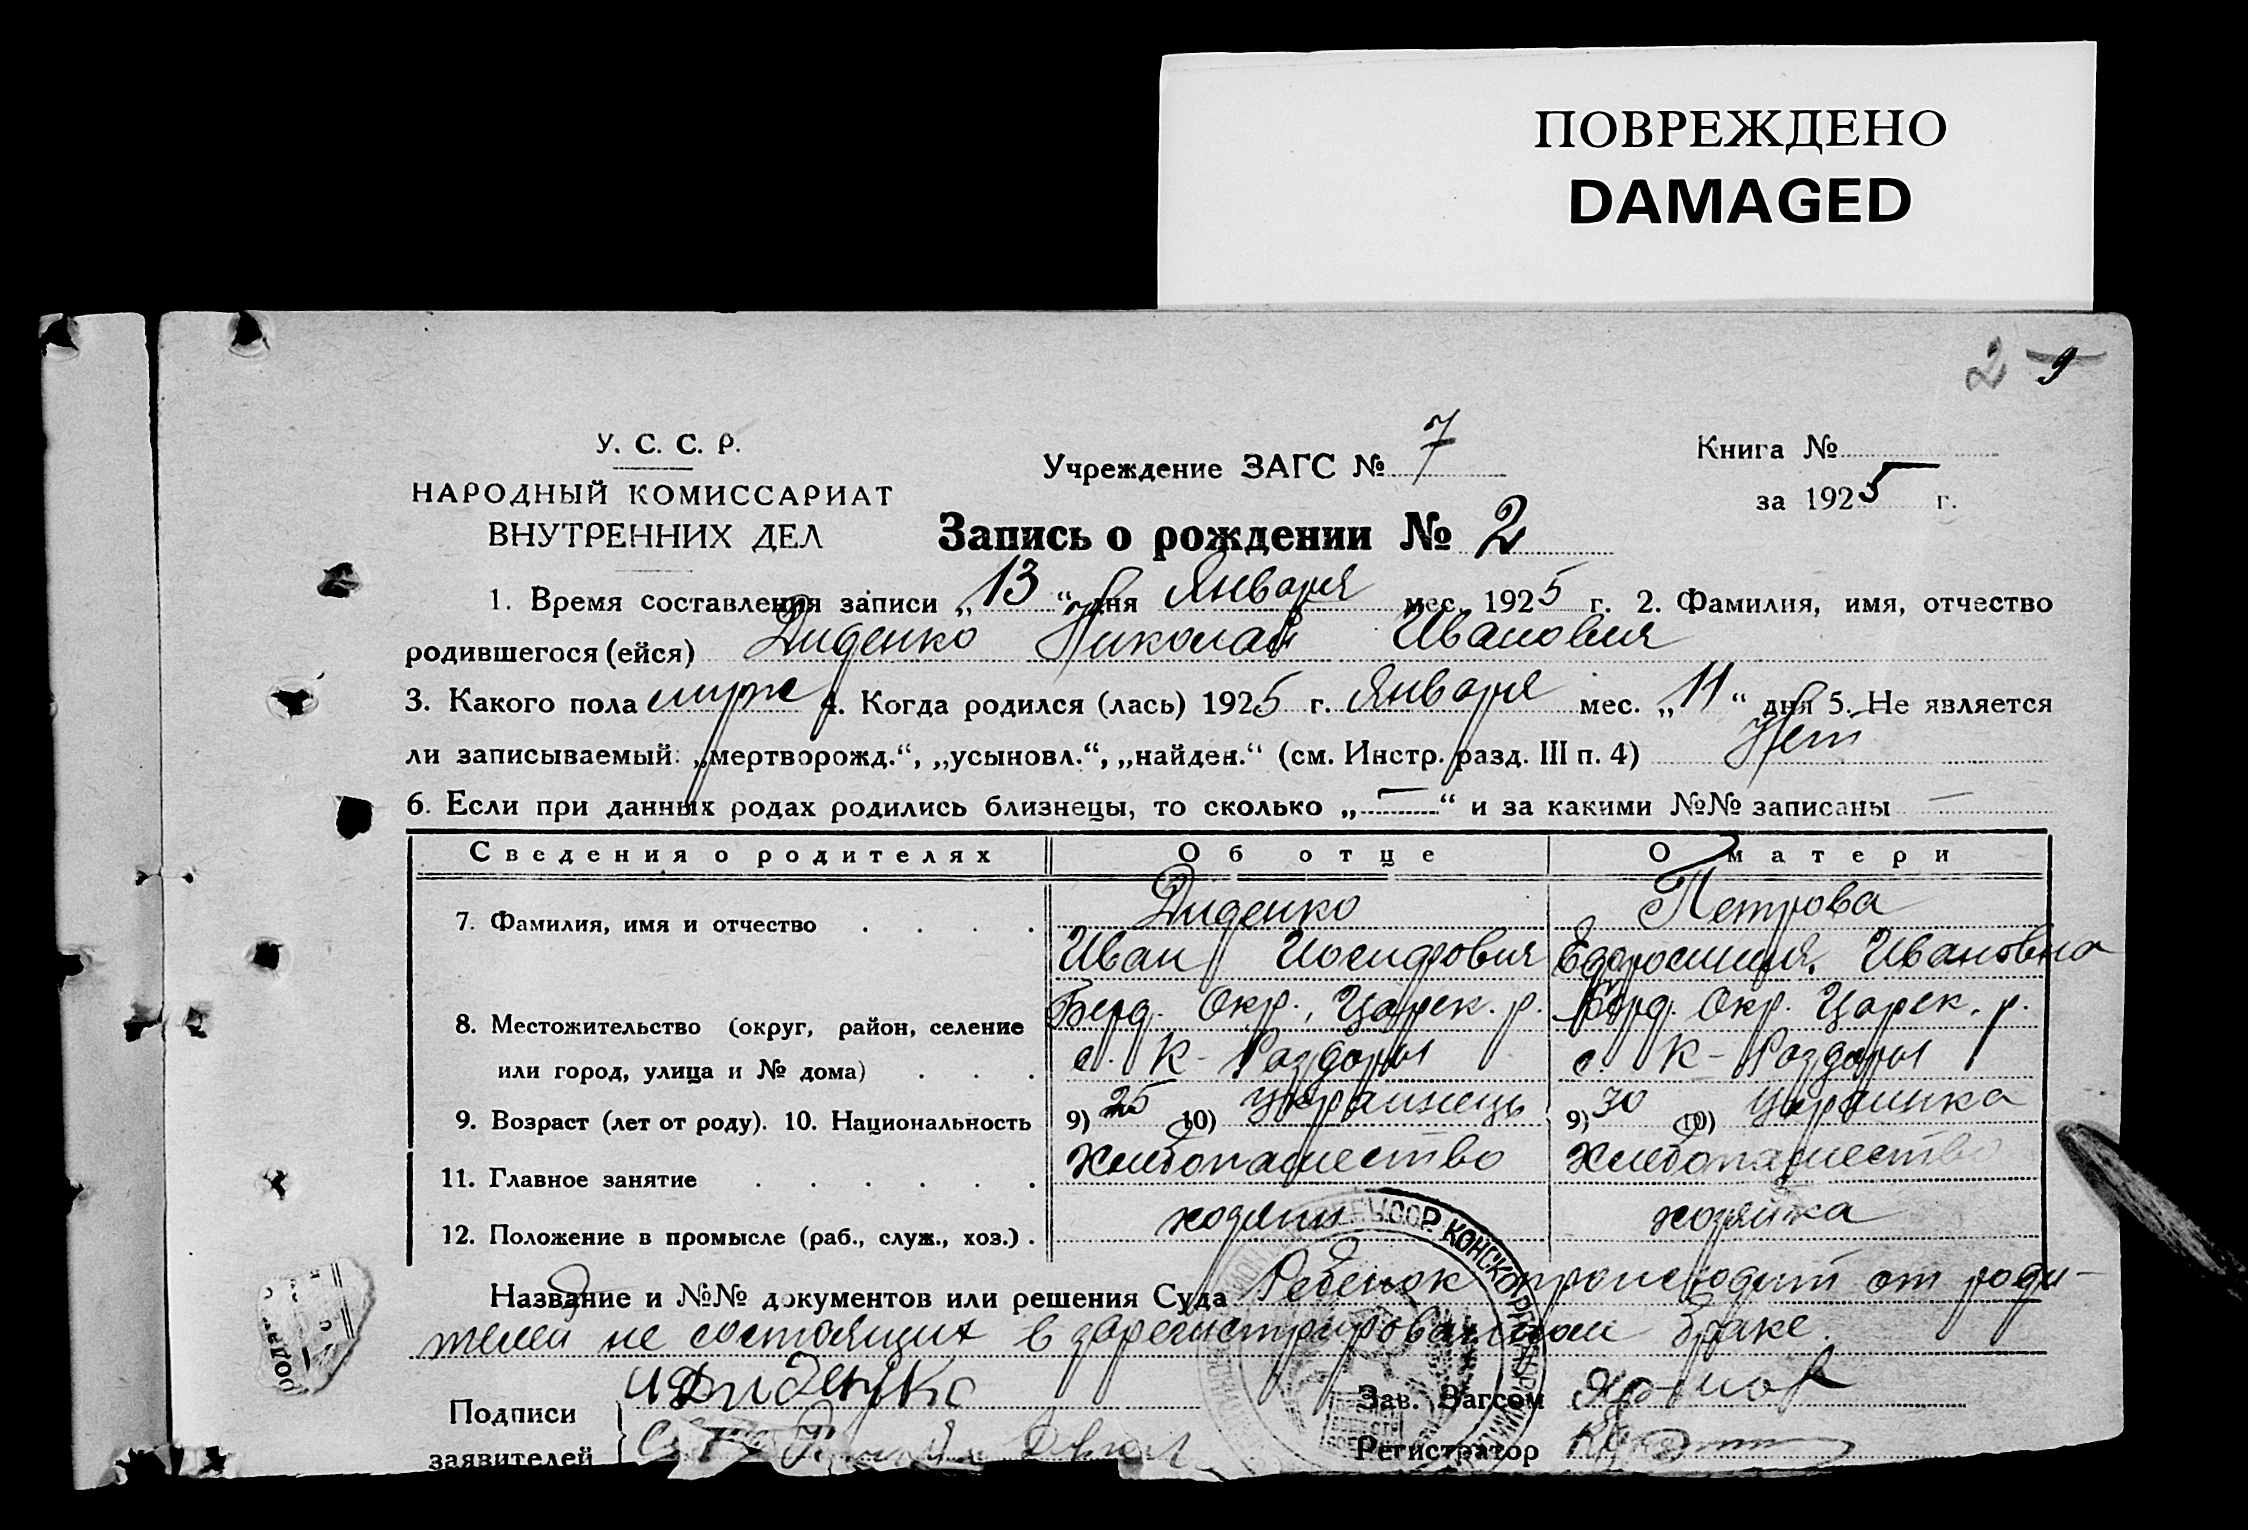 ПОВРЕЖДЕНО
DAMAGED
2 9
У. С. С. Р.
НАРОДНЫЙ КОМИССАРИАТ
ВНУТРЕННИХ ДЕЛ
Учреждение ЗАГС № 7
Книга №
за 1925 г.
Запись о рождении № 2
1. Время составления записи „13“ дня Января мес. 1925 г. 2. Фамилия, имя, отчество
родившегося (ейся) Диденко Николай Иванович
3. Какого пола муж 4. Когда родился (лась) 1925 г. Января мес. „11“ дня 5. Не является
ли записываемый: „мертворожд.“, „усыновл.“, „найден.“ (см. Инстр. разд. III п. 4) Нет
6. Если при данных родах родились близнецы, то сколько „—“ и за какими №№ записаны —
Сведения о родителях Об отце О матери
7. Фамилия, имя и отчество Диденко Петрова
Иван Иосифович Ефросиния Ивановна
8. Местожительство (округ, район, селение Берд. Окр., Царек. р. Берд. Окр. Царек. р.
или город, улица и № дома) с. К-Раздоры с. К-Раздоры
9. Возраст (лет от роду). 10. Национальность 9) 25 10) Украинець 9) 30 10) Украинка
11. Главное занятие Хлебопашество Хлебопашество
12. Положение в промысле (раб., служ., хоз.) хозяин хозяйка
Название и №№ документов или решения Суда Ребенок происходит от роди-
телей не состоящих в зарегистрированном браке.
Подписи И Диденко Зав. Загсом
заявителей Регистратор